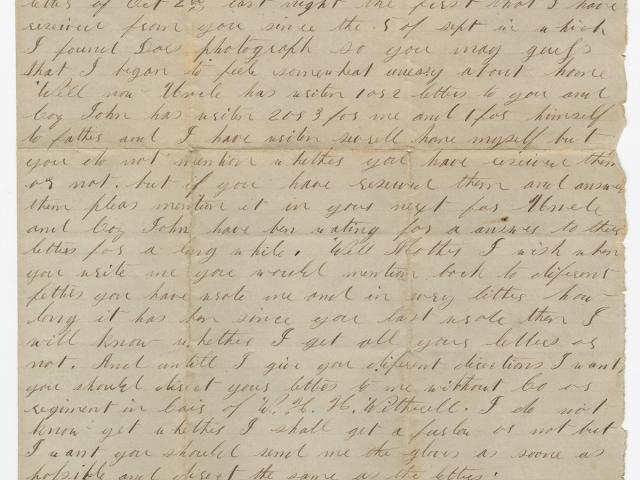 letter of Oct 2nd last night the first that I have
received from you since the 5 of sept in which
I found Does photograph so you may guess
that I began to fele somewhat uneasy about home
Well now Uncle has writen 1 or 2 letters to you and
Coz John has writen 2 or 3 for me and 1 for himself
to father and I have writen severll home myself but
you do not mention whether you have received them
or not. but if you have received them and answer
them pleas mention it in your next for Uncle
and Coz John have ben wating for a answer to their
letters for a long while. Well Mother I wish when
you write me you would mention back to diferent
letters you have wrote me and in evry letter how
long it has ben since you last wrote then I
will know whether I get all your letters or
not. And untill I give you diferent directions I want
you should direct your letters to me without Co or
regiment in Cair of W. H. H. Witherell. I do not
know yet whether I shall get a furlow or not but
I want you should send me the gloves as soon as
possible and direct the same as the letters.